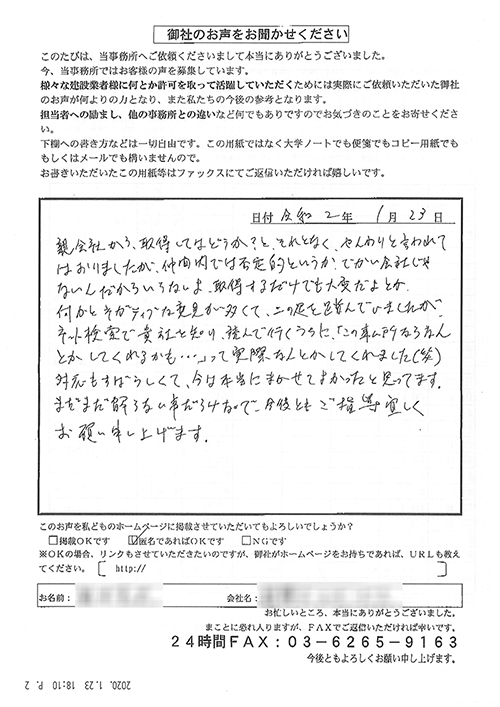 御社のお声をお聞かせください
このたびは、当事務所へご依頼くださいまして本当にありがとうございました。
今、当事務所ではお客様の声を募集しています。
様々な建設業者様に何とか許可を取って活躍していただくためには実際にご依頼いただいた御社
のお声が何よりの力となり、また私たちの今後の参考となります。
担当者への励まし、他の事務所との違いなど何でもありですのでお気づきのことをお寄せくださ
い。
下欄への書き方などは一切自由です。この用紙ではなく大学ノートでも便箋でもコピー用紙でも
もしくはメールでも構いませんので。
お書きいただいたこの用紙等はファックスにてご返信いただければ嬉しいです。
日付 令和 2 年 1 月 23 日
親会社から、取得してはどうか?と、それとなく、やんわりと言われて
はおりましたが、仲間内では否定的というか、でかい会社じゃ
ないんだからいらないよ、取得するだけでも大変だよとか
何かとネガティブな意見が多くて、二の足を踏んでいましたが、
ネット検索で貴社を知り、読んで行くうちに、「この事ム所ならなん
とかしてくれるかも…」って実際なんとかしてくれました(笑)
対応もすばらしくて、今は本当にまかせてよかったと思ってます。
まだまだ解らない事だらけなので、今後ともご指導宜しく
お願い申し上げます。
このお声を私どものホームページに掲載させていただいてもよろしいでしょうか?
□掲載OKです ☑匿名であればOKです □NGです
※OKの場合、リンクもさせていただきたいのですが、御社がホームページをお持ちであれば、URLも教え
てください。〔 http:// 〕
お名前: 会社名:
お忙しいところ、本当にありがとうございました。
まことに恐れ入りますが、FAXでご返信いただければ幸いです。
24時間FAX:03-6265-9163
今後ともよろしくお願い申し上げます。
2020. 1.23 18:10 P. 2